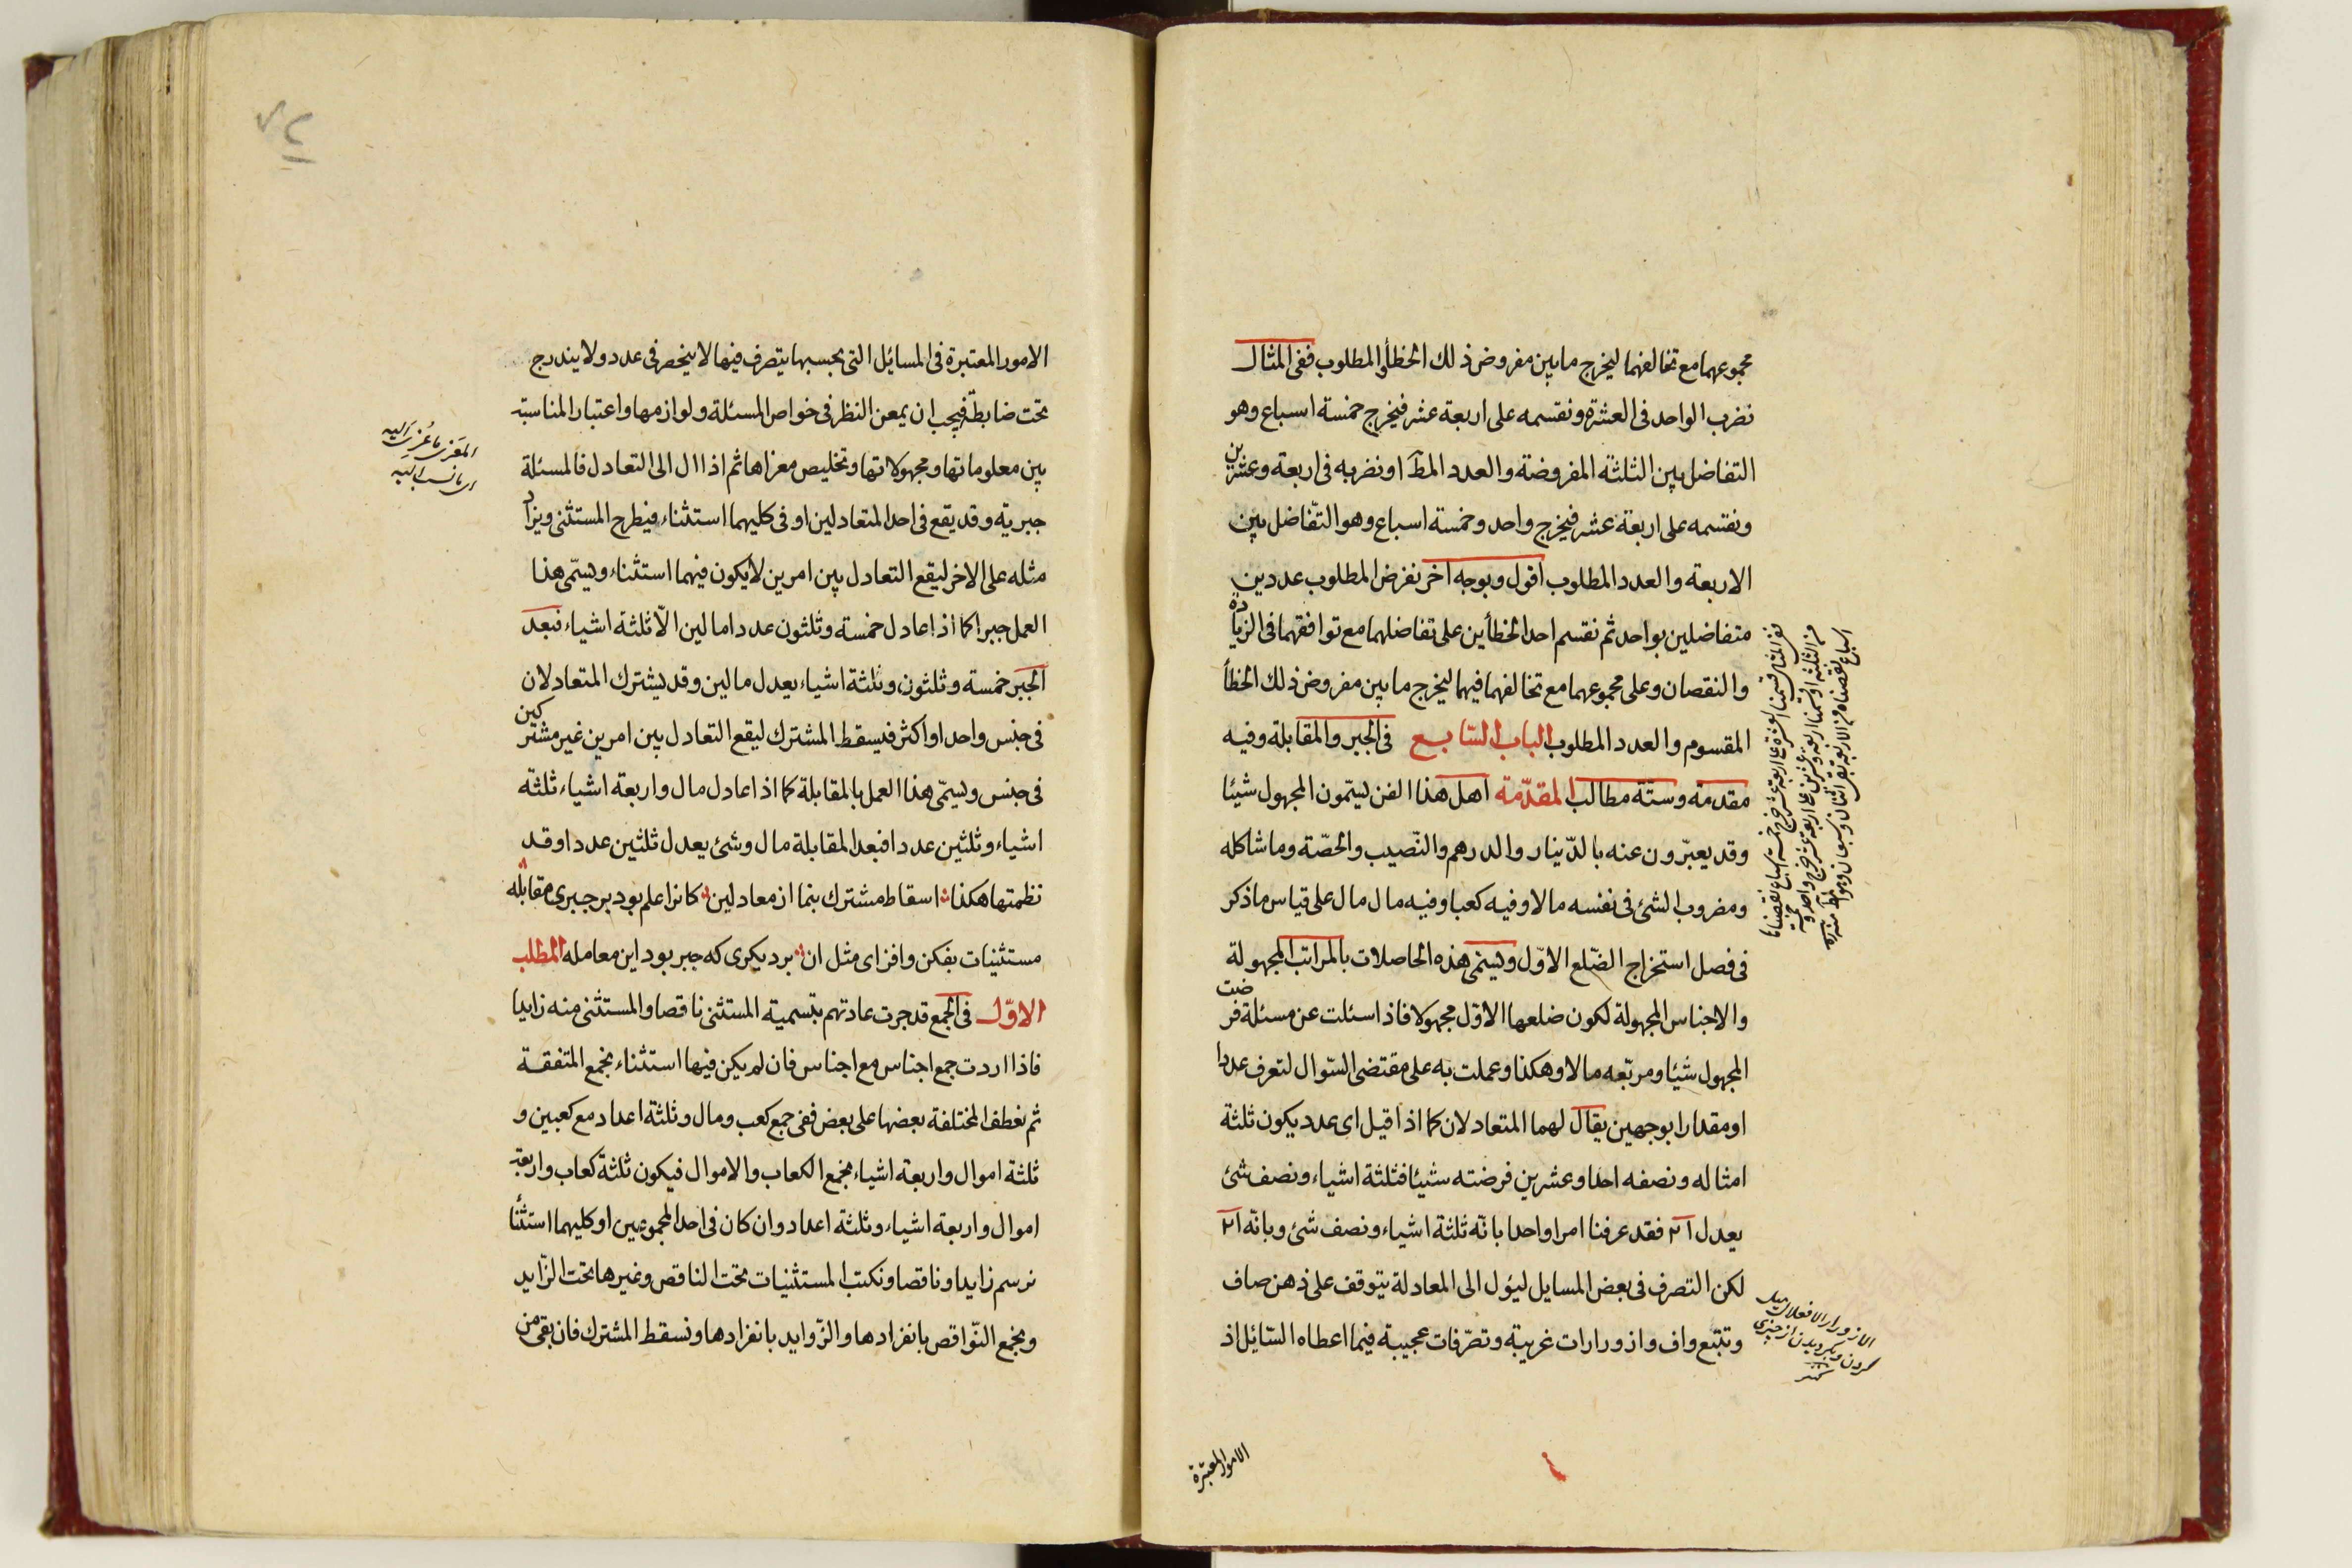 مجموعهما مع تخالفهما ليخرج ما بين مفروض ذلك الخطأ والمطلوب ففى المثال
نضرب الواحد فى العشرة ونقسمه على اربعة عشر فيخرج خمسة اسباع وهو
التفاضل بين الثلثة المفروضة والعدد المط او نضربه فى اربعة وعشرين
ونقسمه على اربعة عشر فيخرج واحد وخمسة اسباع وهو التفاضل بين
الاربعة والعدد المطلوب اقول وبوجه اخر نفرض المطلوب عددين
متفاضلين بواحد ثم نقسم احد الخطأين على تفاضلهما مع توافقهما فى الزيادة
والنقصان وعلى مجموعهما مع تخالفهما فيهما ليخرج ما بين مفروض ذلك الخطأ
المقسوم والعدد المطلوب الباب السّابع فى الجبر والمقابلة وفيه
مقدمة وستّة مطالب المقدّمة اهل هذا الفن يسمّون المجهول شيئا
وقد يعبّرون عنه بالدّينار والدرهم والنّصيب والحصّة وما شاكله
ومضروب الشئ فى نفسه مالا وفيه كعبا وفيه مال مال على قياس ما ذكر
فى فصل استخراج الضّلع الاوّل ويسمى هذه الحاصلات بالمراتب المجهولة
والاجناس المجهولة لكون ضلعها الاوّل مجهولا فاذا سئلت عن مسئلة فرضت
المجهول شيئا ومربّعه مالا وهكذا وعملت به على مقتضى السّوال لتعرف عددا
او مقدارا بوجهين يقال لهما المتعادلان كما اذا قيل اى عدد يكون ثلثة
امثاله ونصفه احدا وعشرين فرضته شيئا فثلثة اشياء ونصف شئ
يعدل ٢١ فقد عرفنا امرا واحدا بانّه ثلثة اشياء ونصف شئ وبانّه ٢١
لكن التصرف فى بعض المسايل ليؤل الى المعادلة يتوقف على ذهن صاف
وتتبع واف وازورارات غريبة وتصرّفات عجيبة فيما اعطاه السّائل اذ
الازورار الافعلال ميل
كردن وبگرديدن از چيزى
كنز
الامور المعتبرة
الامور المعتبرة فى المسائل التى بحسبها يتصرف فيها لا ينحصر فى عدد ولا يندرج
تحت ضابطة فيجب ان يمعن النظر فى خواص المسئلة ولوازمها واعتبار المناسبة
بين معلوماتها ومجهولاتها وتخليص مغزاها ثم اذا ال الى التعادل فالمسئلة
جبرية وقد يقع فى احد المتعادلين او فى كليهما استثناء فيطرح المستثنى ويزاد
مثله على الاخر ليقع التعادل بين امرين لا يكون فيهما استثناء ويسمّى هذا
العمل جبرا كما اذا عادل خمسة وثلثون عددا مالين الّا ثلثة اشياء فبعد
الجبر خمسة وثلثون وثلثة اشياء يعدل مالين وقد يشترك المتعادلان
فى جنس واحد او اكثر فيسقط المشترك ليقع التعادل بين امرين غير مشتركين
فى جنس ويسمّى هذا العمل بالمقابلة كما اذا عادل مال واربعة اشياء ثلثة
اشياء وثلثين عددا فبعد المقابلة مال وشئ يعدل ثلثين عددا وقد
نظمتها هكذا اسقاط مشترك بنما از معادلين كانرا علم بود بر جبرى مقابله
مستثنيات بفكن وافزاى مثل ان بر ديكرى كه جبر بود اين معامله المطلب
الاوّل فى الجمع قد جرت عادتهم بتسمية المستثنى ناقصا والمستثنى منه زايدا
فاذا اردت جمع اجناس مع اجناس فان لم يكن فيها استثناء نجمع المتفقة
ثم نعطف المختلفة بعضها على بعض ففى جمع كعب ومال وثلثة اعداد مع كعبين و
ثلثة اموال واربعة اشياء نجمع الكعاب والاموال فيكون ثلثة كعاب واربعة
اموال واربعة اشياء وثلثة اعداد وان كان فى احد المجموعين او كليهما استثنأ
نرسم زايدا وناقصا ونكتب المستثنيات تحت الناقص وغيرها تحت الزّايد
ونجمع النّواقص بانفرادها والزّوايد بانفرادها ونسقط المشترك فان بقى من
المغزى ما عُزىَ اليه
اى ما نسب اليه